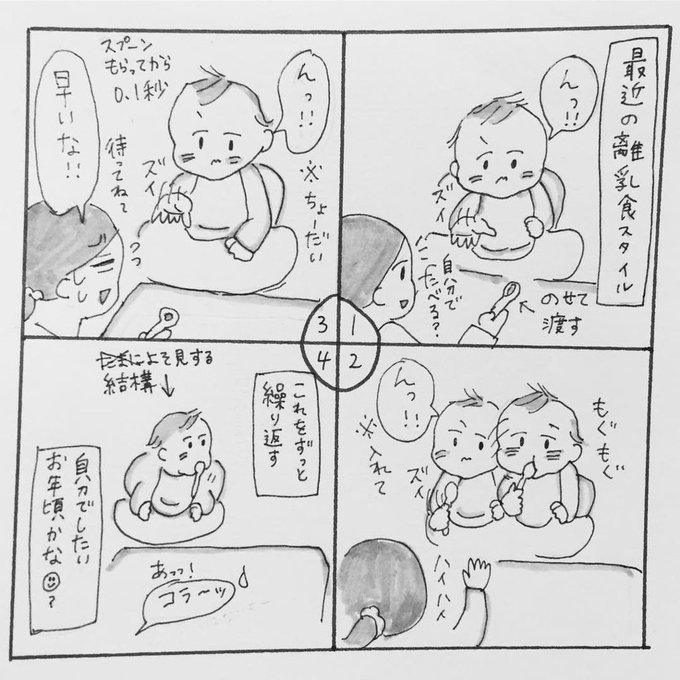 最近の離乳食スタイル
んっ!!
ズイ
自分で
たべる?
のせて
渡す
1
もぐもぐ
んっ!!
※入れて
ズイ
ハイハイ
2
んっ!!
※ちょーだい
スプーン
もらってから
0.1秒
ズイ
待ってねて
早いな!!
3
これをずっと
繰り返す
たまによそ見する
結構
自分でしたい
お年頃かな
?
あっっ!
コラ〜ッ
4